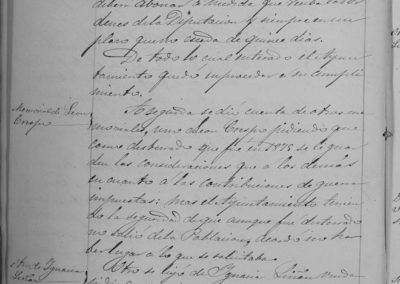 deben abonar a medida que reciba las ór-
denes de la Diputacion y siempre en un
plazo que no esceda de quince dias.
De todo lo cual enterado el Ayun-
tamiento quedó en proceder a su cumpli-
miento.
Memorial de Leon
Crespo
A seguida se dió cuenta de otros me-
moriales, uno de Leon Crespo pidiendo que
como desterrado que fue en 1875 se le guar-
den las consideraciones que a los demás
en cuanto a las contribuciones de guerra
impuestas: mas el Ayuntamiento tenien-
do la seguridad de que aunque fue desterrado
no salió de la Poblacion, acordó no ha-
ber lugar a lo que se solicitaba.
Otro de Ignacia
Liñan
Otro se leyó de Ignacia Liñan viuda